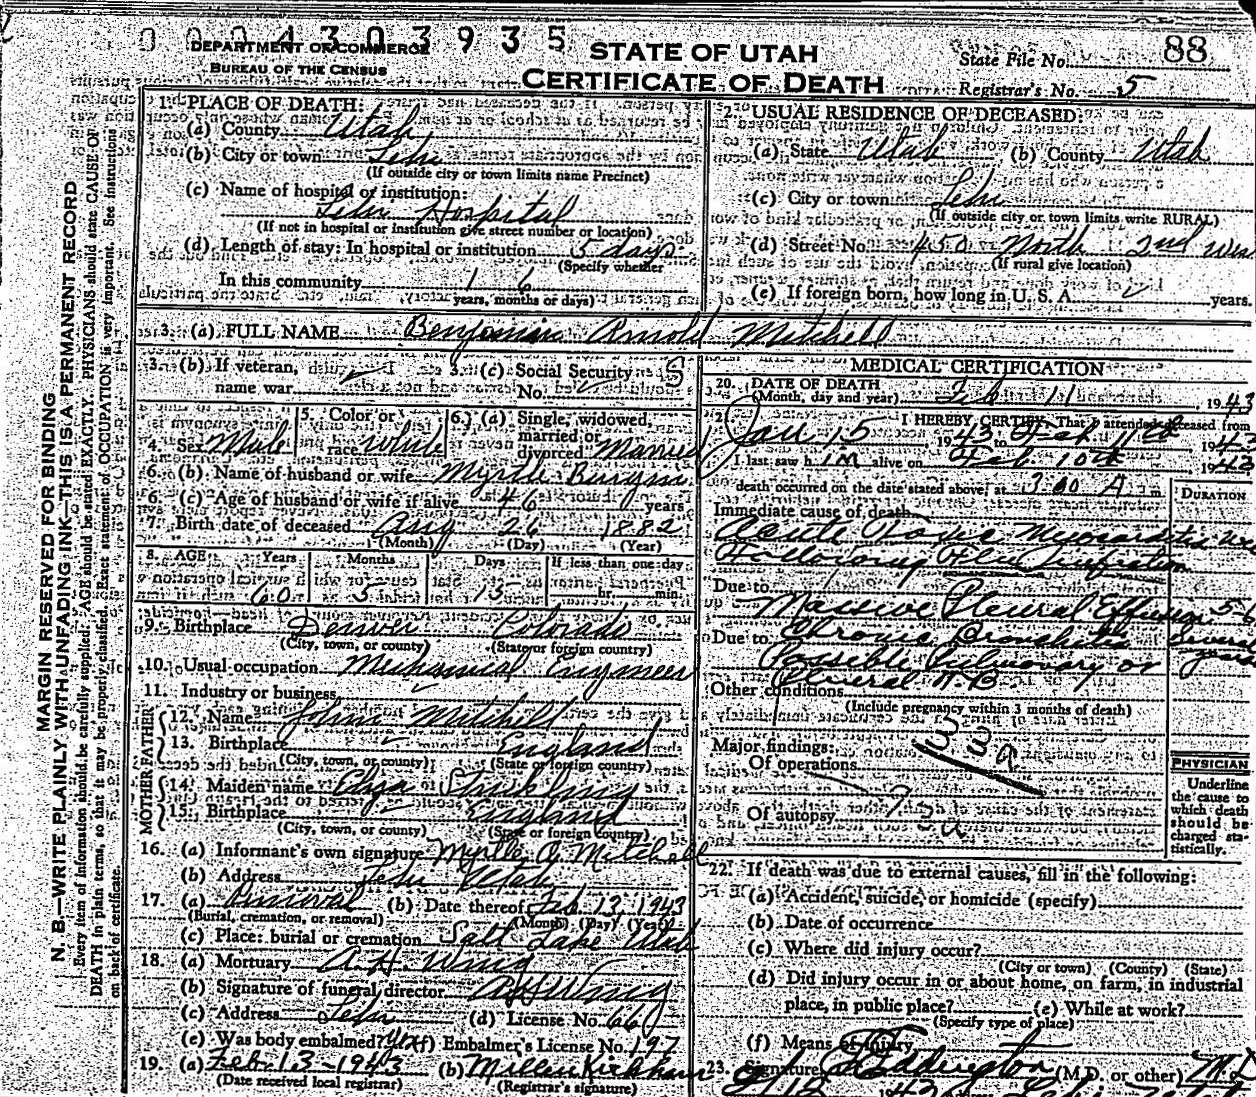 0 0 0 4 3 0 3 9 3 5
DEPARTMENT OF COMMERCE
BUREAU OF THE CENSUS
STATE OF UTAH
CERTIFICATE OF DEATH
State File No. 88
Registrar's No. 5
MARGIN RESERVED FOR BINDING
N. B.—WRITE PLAINLY WITH UNFADING INK—THIS IS A PERMANENT RECORD
Every item of information should be carefully supplied. AGE should be stated EXACTLY. PHYSICIANS should state CAUSE OF
DEATH in plain terms, so that it may be properly classified. Exact statement of OCCUPATION is very important. See instructions
on back of certificate.
1. PLACE OF DEATH:
(a) County Utah
(b) City or town Lehi
(If outside city or town limits name Precinct)
(c) Name of hospital or institution:
Lehi Hospital
(If not in hospital or institution give street number or location)
(d) Length of stay: In hospital or institution 5 days
(Specify whether
In this community 1 6
years, months or days)
2. USUAL RESIDENCE OF DECEASED:
(a) State Utah (b) County Utah
(c) City or town Lehi
(If outside city or town limits write RURAL)
(d) Street No. 450 North 2nd West
(If rural give location)
(e) If foreign born, how long in U. S. A. years.
3. (a) FULL NAME Benjamin Arnold Mitchell
3. (b) If veteran, name war
3. (c) Social Security No. S
4. Sex Male
5. Color or race white
6. (a) Single, widowed, married or divorced Married
6. (b) Name of husband or wife Myrtle
6. (c) Age of husband or wife if alive 46 years
7. Birth date of deceased Aug 26 1882
(Month) (Day) (Year)
8. AGE Years Months Days If less than one day
60 5 15 hr. min.
9. Birthplace Denver Colorado
(City, town, or county) (State or foreign country)
10. Usual occupation Mechanical Engineer
11. Industry or business
FATHER
12. Name John Mitchell
13. Birthplace England
(City, town, or county) (State or foreign country)
MOTHER
14. Maiden name Eliza
15. Birthplace England
(City, town, or county) (State or foreign country)
16. (a) Informant's own signature Myrtle A Mitchell
(b) Address Lehi Utah
17. (a) Removal (b) Date thereof Feb. 13, 1943
(Burial, cremation, or removal) (Month) (Day) (Year)
(c) Place: burial or cremation Salt Lake Utah
18. (a) Mortuary A. H. Wing
(b) Signature of funeral director AH Wing
(c) Address Lehi (d) License No. 66
(e) Was body embalmed? Yes (f) Embalmer's License No. 197
19. (a) Feb. 13-1943 (b) Millen Kirkham
(Date received local registrar) (Registrar's signature)
MEDICAL CERTIFICATION
20. DATE OF DEATH
(Month, day and year) Feb 11, 1943
21. I HEREBY CERTIFY, That I attended deceased from
Jan 15 1943 to Feb 11th 1943
I last saw him alive on Feb. 10th 1942
death occurred on the date stated above, at 3:00 A m.
DURATION
Immediate cause of death
Acute Toxic Myocarditis
Following Flu Infection
Due to
Massive Pleural Effusion
Due to Chronic Bronchitis Several years
Possible Pulmonary or
Pleural T. B
Other conditions
(Include pregnancy within 3 months of death)
33a
Major findings:
Of operations
Of autopsy
PHYSICIAN
Underline
the cause to
which death
should be
charged sta-
tistically.
22. If death was due to external causes, fill in the following:
(a) Accident, suicide, or homicide (specify)
(b) Date of occurrence
(c) Where did injury occur?
(City or town) (County) (State)
(d) Did injury occur in or about home, on farm, in industrial
place, in public place? (e) While at work?
(Specify type of place)
(f) Means of injury
23. Signature Eddington (M.D. or other) M.D